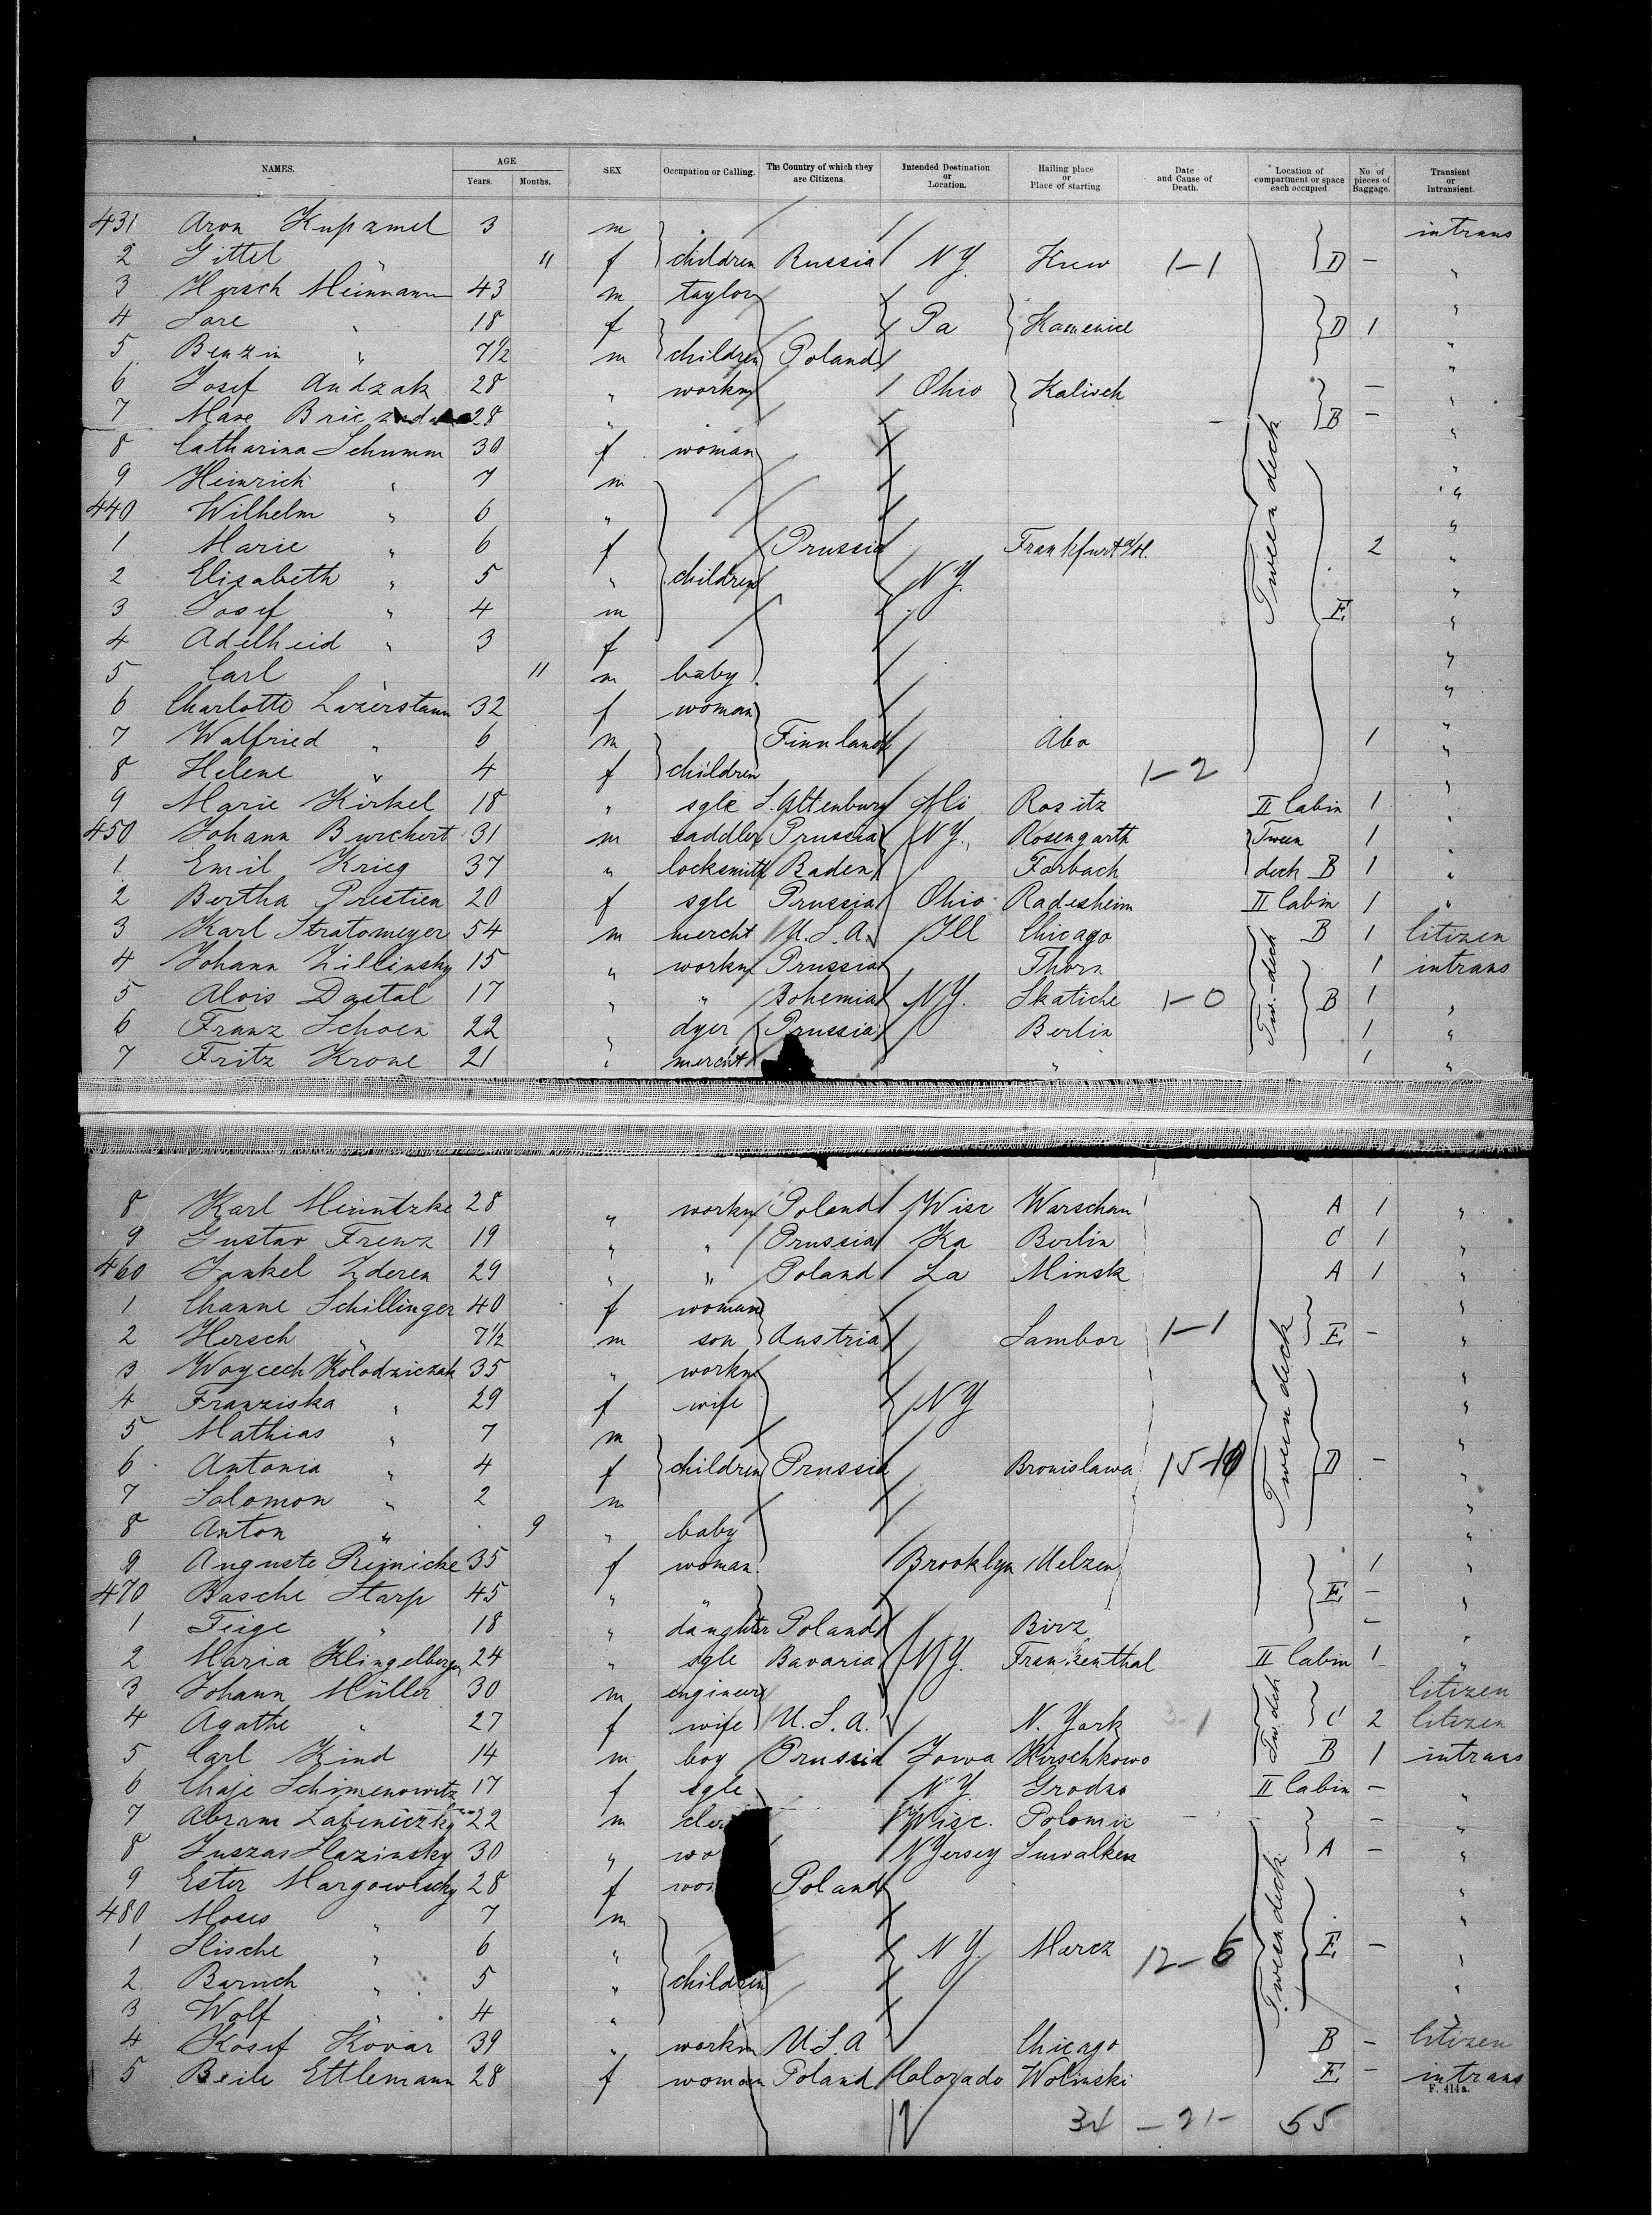 NAMES. AGE SEX Occupation or Calling. The Country of which they are Citizens. Intended Destination or Location. Hailing place or Place of starting. Date and Cause of Death. Location of compartment or space each occupied No of pieces of Baggage. Transient or Intransient.
Years. Months.
431 Aron Kupzmel 3 m intrans
2 Gittel " 11 f children Russia NY. Kiew 1-1 D - "
3 Hersch Meinmann 43 m taylor "
4 Sare " 18 f Pa Kamenice D 1 "
5 Benzin " 7 1/2 m children Poland "
6 Josef Andzak 28 " workm Ohio Kalisch - "
7 28 " - B - "
8 Catharina Schumm 30 f woman "
9 Heinrich " 7 m "
440 Wilhelm " 6 " "
1 Marie " 6 f Prussia Frankfurt a/M. 2 "
2 Elisabeth " 5 " children NY. "
3 Josef " 4 m E "
4 Adelheid " 3 f Tween deck "
5 Carl 11 m baby "
6 Charlotte Lazerstam 32 f woman "
7 Walfried " 6 m Finnland Abo 1 "
8 Helene " 4 f children 1-2 "
9 Marie Kirkel 18 " sgle S. Altenburg Mi Rositz II Cabin 1 "
450 Johann Burchert 31 m saddler Prussia NY. Rosengarth Tween 1 "
1 Emil Krieg 37 " locksmith Baden Forbach deck B 1 "
2 Bertha Prestien 20 f sgle Prussia Ohio Radesheim II Cabin 1 "
3 Karl Stratomeyer 54 m mercht U.S.A. Ill Chicago B 1 Citizen
4 Johann Zillinsky 15 " workm Prussia Thorn Tw.-deck 1 intrans
5 Alois Dostal 17 " " Bohemia NY. Skatiche 1-0 B 1 "
6 Franz Schoen 22 " dyer Prussia Berlin 1 "
7 Fritz Krone 21 " mercht " 1 "
8 Karl Meintzke 28 " workm Poland Wisc Warschau A 1 "
9 Gustav Frenz 19 " " Prussia Ka Berlin C 1 "
460 Jankel Zderen 29 " " Poland La Minsk A 1 "
1 Channe Schillinger 40 f woman "
2 Hersch " 7 1/2 m son Austria Sambor 1-1 E - "
3 Woycech Kolodziczak 35 " workm "
4 Franziska " 29 f wife NY Tween deck "
5 Mathias " 7 m "
6 Antonia " 4 f children Prussia Bronislawa D - "
7 Salomon " 2 m "
8 Anton " 9 " baby "
9 Auguste Reinicke 35 f woman Brooklyn Uelzen 1 "
470 Basche Starp 45 " " E - "
1 Feige " 18 " daughter Poland Birz - "
2 Maria Klingelberger 24 " sgle Bavaria NY. Frankenthal II Cabin 1 "
3 Johann Müller 30 m engineer Citizen
4 Agathe " 27 f wife U.S.A. N. York 3-1 Tw. deck C 2 Citizen
5 Carl Kind 14 m boy Prussia Iowa Kirschkowo B 1 intrans
6 Chaje Schimenowitz 17 f sgle NY. Grodno II Cabin - "
7 Abram 22 m Wisc. - - "
8 30 " N Jersey Suwalken A - "
9 Ester Margowschy 28 f Poland "
480 Moses " 7 m "
1 Slische " 6 " NY. Marcz 12-6 Tween deck E - "
2 Baruch " 5 " children "
3 Wolf " 4 " "
4 Kosef Kovar 39 " workm U.S.A Chicago B - Citizen
5 Beile Ettlemann 28 f woman Poland Colorado Wolinski E - intrans
F. 414a.
12 34 - 21 - 55